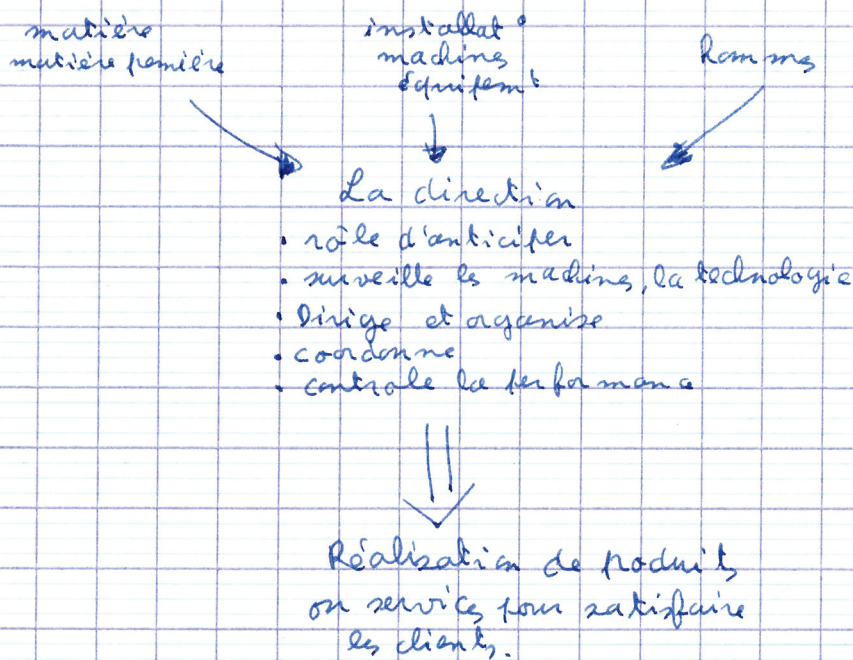 matière
matière première
installat°
machines
équipemt
hommes
La direction
• rôle d'anticiper
• surveille les machines, la technologie
• Dirige et organise
• coordonne
• contrôle la performance
Réalisation de produits
ou services pour satisfaire
les clients.